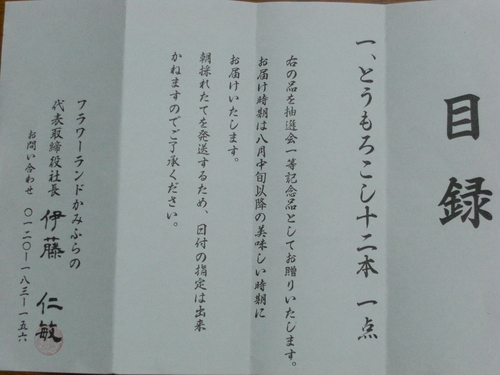 目録
一、とうもろこし十二本 一点
右の品を抽選会一等記念品としてお贈りいたします。
お届け時期は八月中旬以降の美味しい時期に
お届けいたします。
朝採れたてを発送するため、日付の指定は出来
かねますのでご了承ください。
フラワーランドかみふらの
代表取締役社長 伊藤 仁敏
お問い合わせ 〇一二〇ー一八三ー一五六